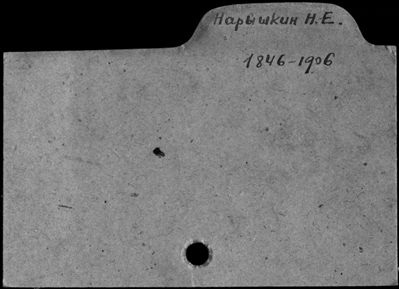 Нарышкин Н.Е.
1846-1906